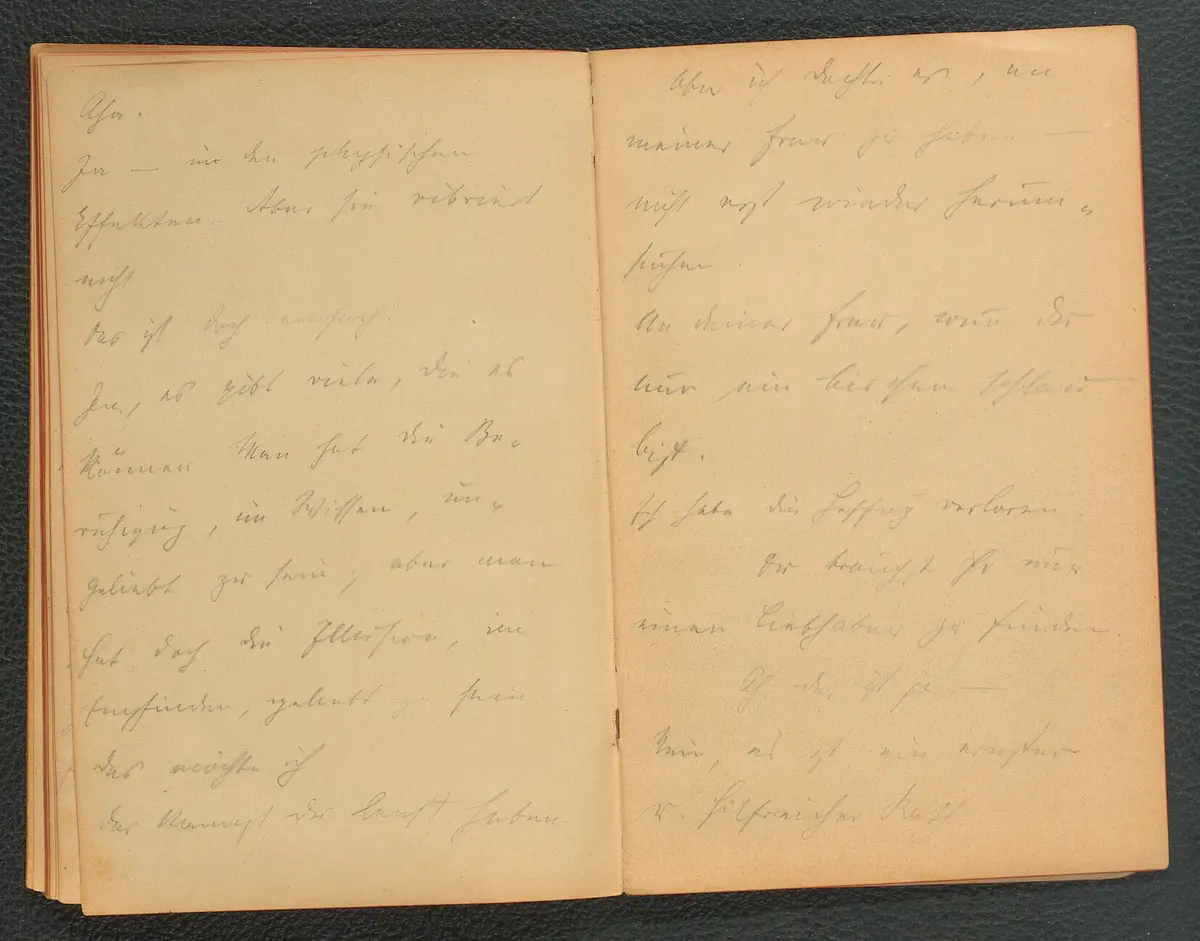 Aha.
Ja — in den physischen
Effekten. Aber sie vibriert
nicht
Das ist doch
Ja, es gibt viele, die es
können Man hat die Be-
ruhigung, im Wissen, un-
geliebt zu sein, aber man
hat doch die Illusion, im
Empfinden, geliebt zu sein
das möchte ich
das kannst du leicht haben.
Aber ich dachte es, an
meiner Frau zu haben —
nicht erst wieder herum-
suchen.
An deiner Frau, wenn du
nur ein bischen schlau
bist.
Ich habe die Hoffnung verloren.
Du brauchst Ihr nur
einen Liebhaber zu finden.
Ach das ist ja —
Nein, es ist ein ernster
u. hilfreicher Rat